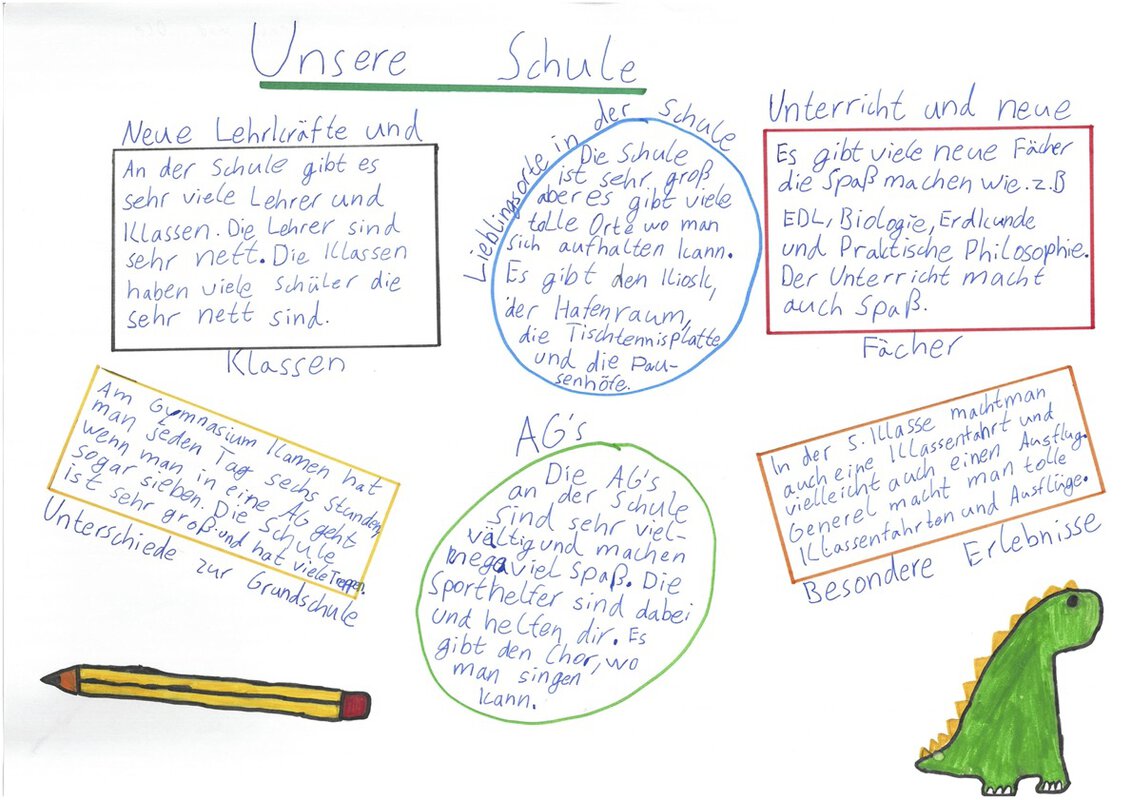 Unsere Schule
Neue Lehrkräfte und
An der Schule gibt es
sehr viele Lehrer und
Klassen. Die Lehrer sind
sehr nett. Die Klassen
haben viele Schüler die
sehr nett sind.
Klassen
Lieblingsorte in der Schule
Die Schule
ist sehr groß
aber es gibt viele
tolle Orte wo man
sich aufhalten kann.
Es gibt den Kiosk,
der Hafenraum,
die Tischtennisplatte
und die Pau-
senhöfe.
Unterricht und neue
Es gibt viele neue Fächer
die Spaß machen wie. z.B
EDL, Biologie, Erdkunde
und Praktische Philosophie.
Der Unterricht macht
auch Spaß.
Fächer
Am Gymnasium Kamen hat
man jeden Tag sechs Stunden,
wenn man in eine AG geht
sogar sieben. Die Schule
ist sehr groß und hat viele Treppen.
Unterschiede zur Grundschule
AG's
Die AG's
an der Schule
sind sehr viel-
vältig und machen
mega viel Spaß. Die
Sporthelfer sind dabei
und helfen dir. Es
gibt den Chor, wo
man singen
kann.
In der 5. Klasse macht man
auch eine Klassenfahrt und
vielleicht auch einen Ausflug.
Generel macht man tolle
Klassenfahrten und Ausflüge.
Besondere Erlebnisse